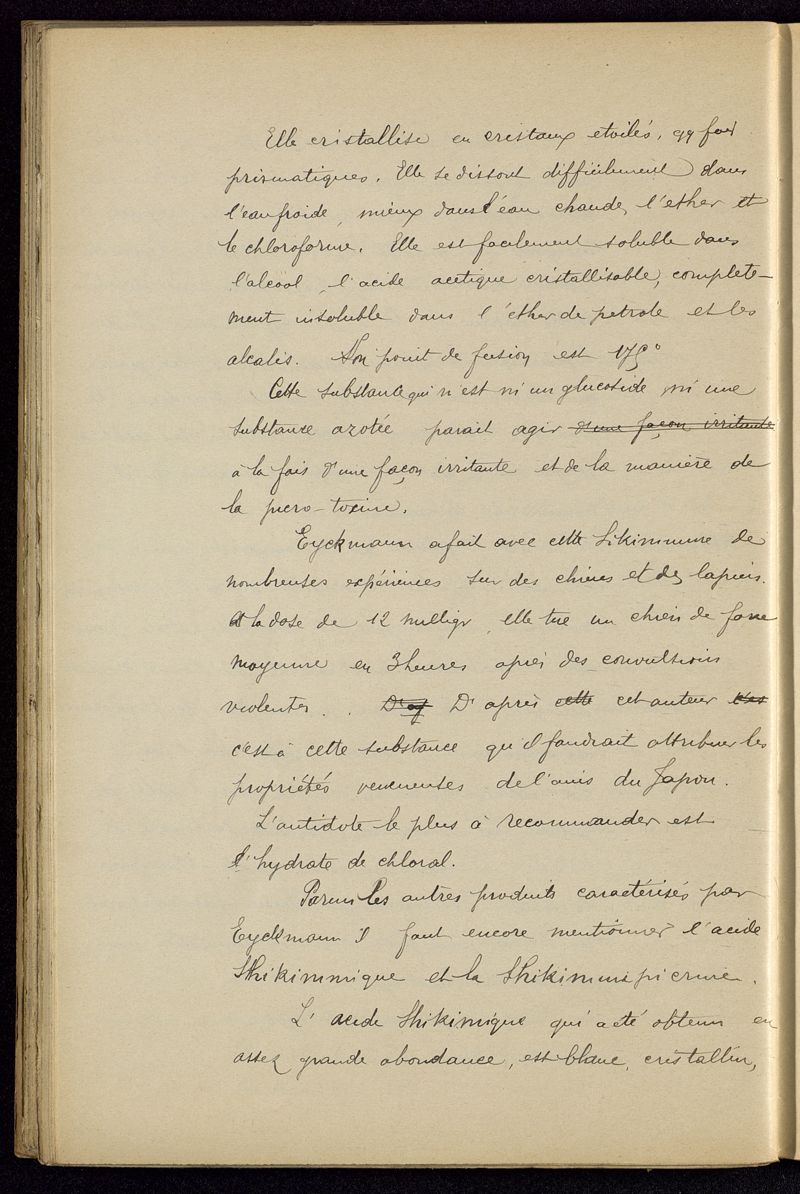 Elle cristallise en cristaux etoilés, qq fois
prismatiques. Elle se dissout difficilement dans
l'eau froide, mieux dans l'eau chaude, l'ether et
le chloroforme. Elle est facilement soluble dans
l'alcool, l'acide acetique cristallisable, complete-
ment insoluble dans l'éther de petrole et les
alcalis. Son point de fusion est 175°
Cette substance qui n'est ni un glucoside, ni une
substance azotée parait agir d'une façon irritante
à la fois d'une façon irritante et de la manière de
la picro-toxine.
Eyckmann a fait avec cette Sikimmine de
nombreuses expériences sur des chiens et des lapins.
A la dose de 12 milligr, elle tue un chien de force
moyenne en 3 heures après des convulsions
violentes. D'ap D'après cette cet auteur c'es
c'est à cette substance qu'il faudrait attribuer les
propriétés veneneuses de l'anis du Japon.
L'antidote le plus à recommander est
l'hydrate de chloral.
Parmi les autres produits caractérisés par
Eyckmann il faut encore mentionner l'acide
Shikimmique et la Shikimmipicrine.
L'acide Shikimique qui a été obtenu en
assez grande abondance, est blanc, cristallin,